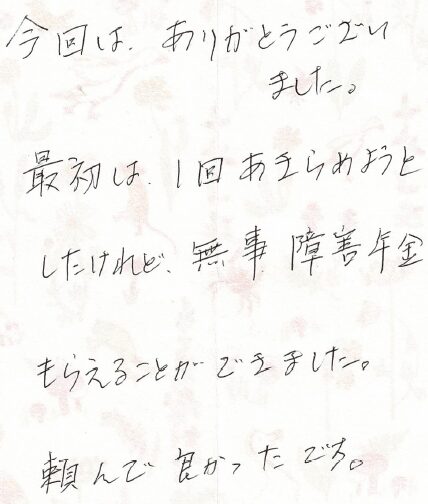 今回は、ありがとうござい
ました。
最初は、1回あきらめようと
したけれど、無事障害年金
もらえることができました。
頼んで良かったです。